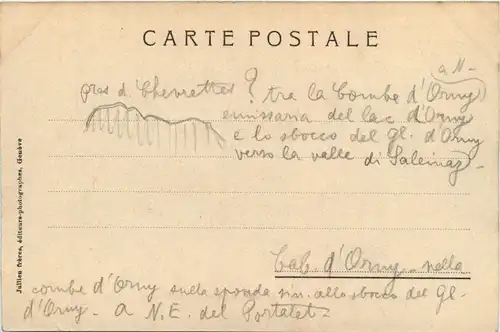 CARTE POSTALE
a N-
pres d. Chevrettes ? tra la Combe d'Orny
emissaria del lac d'Orny
e lo sbocco del gl. d'Orny
verso la valle di Saleinaz-
Cab. d'Orny - nella
combe d'Orny sulla sponda sin. allo sbocco del Gl-
d'Orny - a N.E. del Portalet-
Jullien frères, éditeurs-photographes, Genève